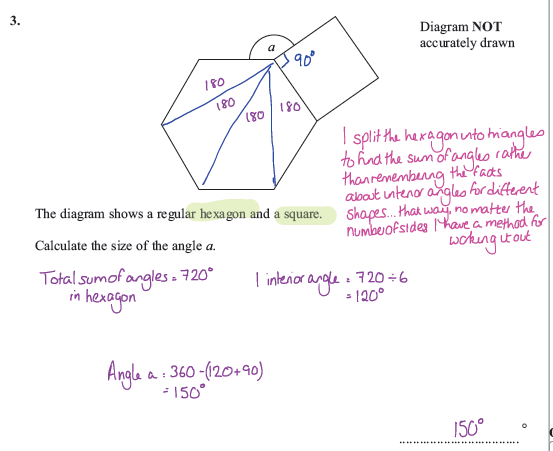 3.
Diagram NOT
accurately drawn
a
90°
180
180
180
180
I split the hexagon into triangles
to find the sum of angles rather
than remembering the facts
about interior angles for different
shapes... that way, no matter the
number of sides I have a method for
working it out
The diagram shows a regular hexagon and a square.
Calculate the size of the angle a.
Total sum of angles = 720°
in hexagon
1 interior angle = 720 ÷ 6
= 120°
Angle a : 360 - (120+90)
= 150°
150° °